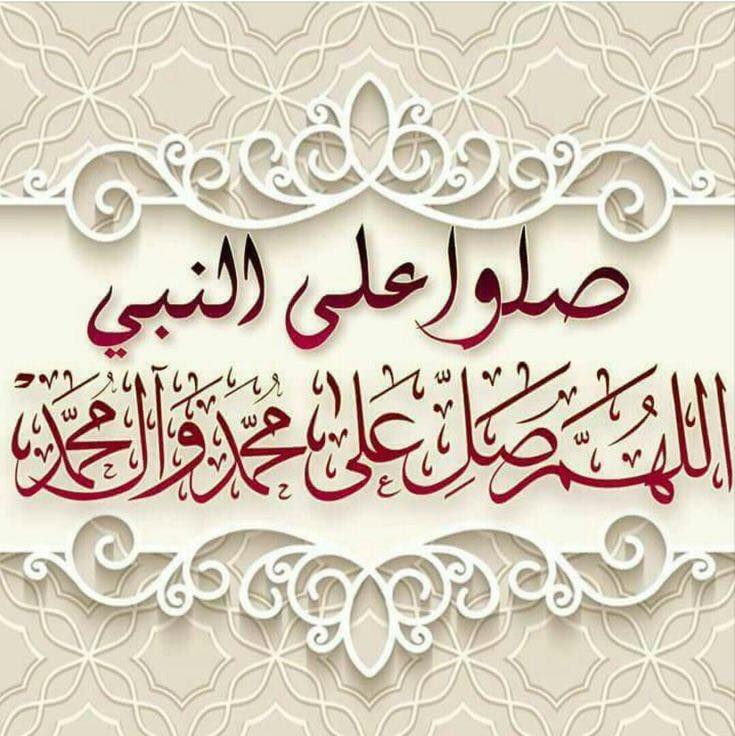 صلوا على النبي
اللهُمَّ صَلِّ عَلى مُحمَّد وَآل مُحمَّد